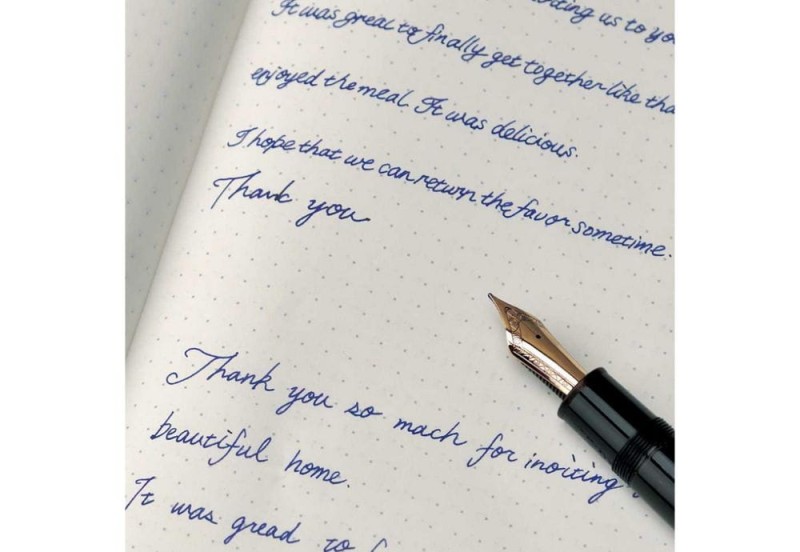 us to
It was great to finally get together like
enjoyed the meal. It was delicious.
I hope that we can return the favor sometime.
Thank you
Thank you so mach for inoiting
beautiful home.
It was gread to